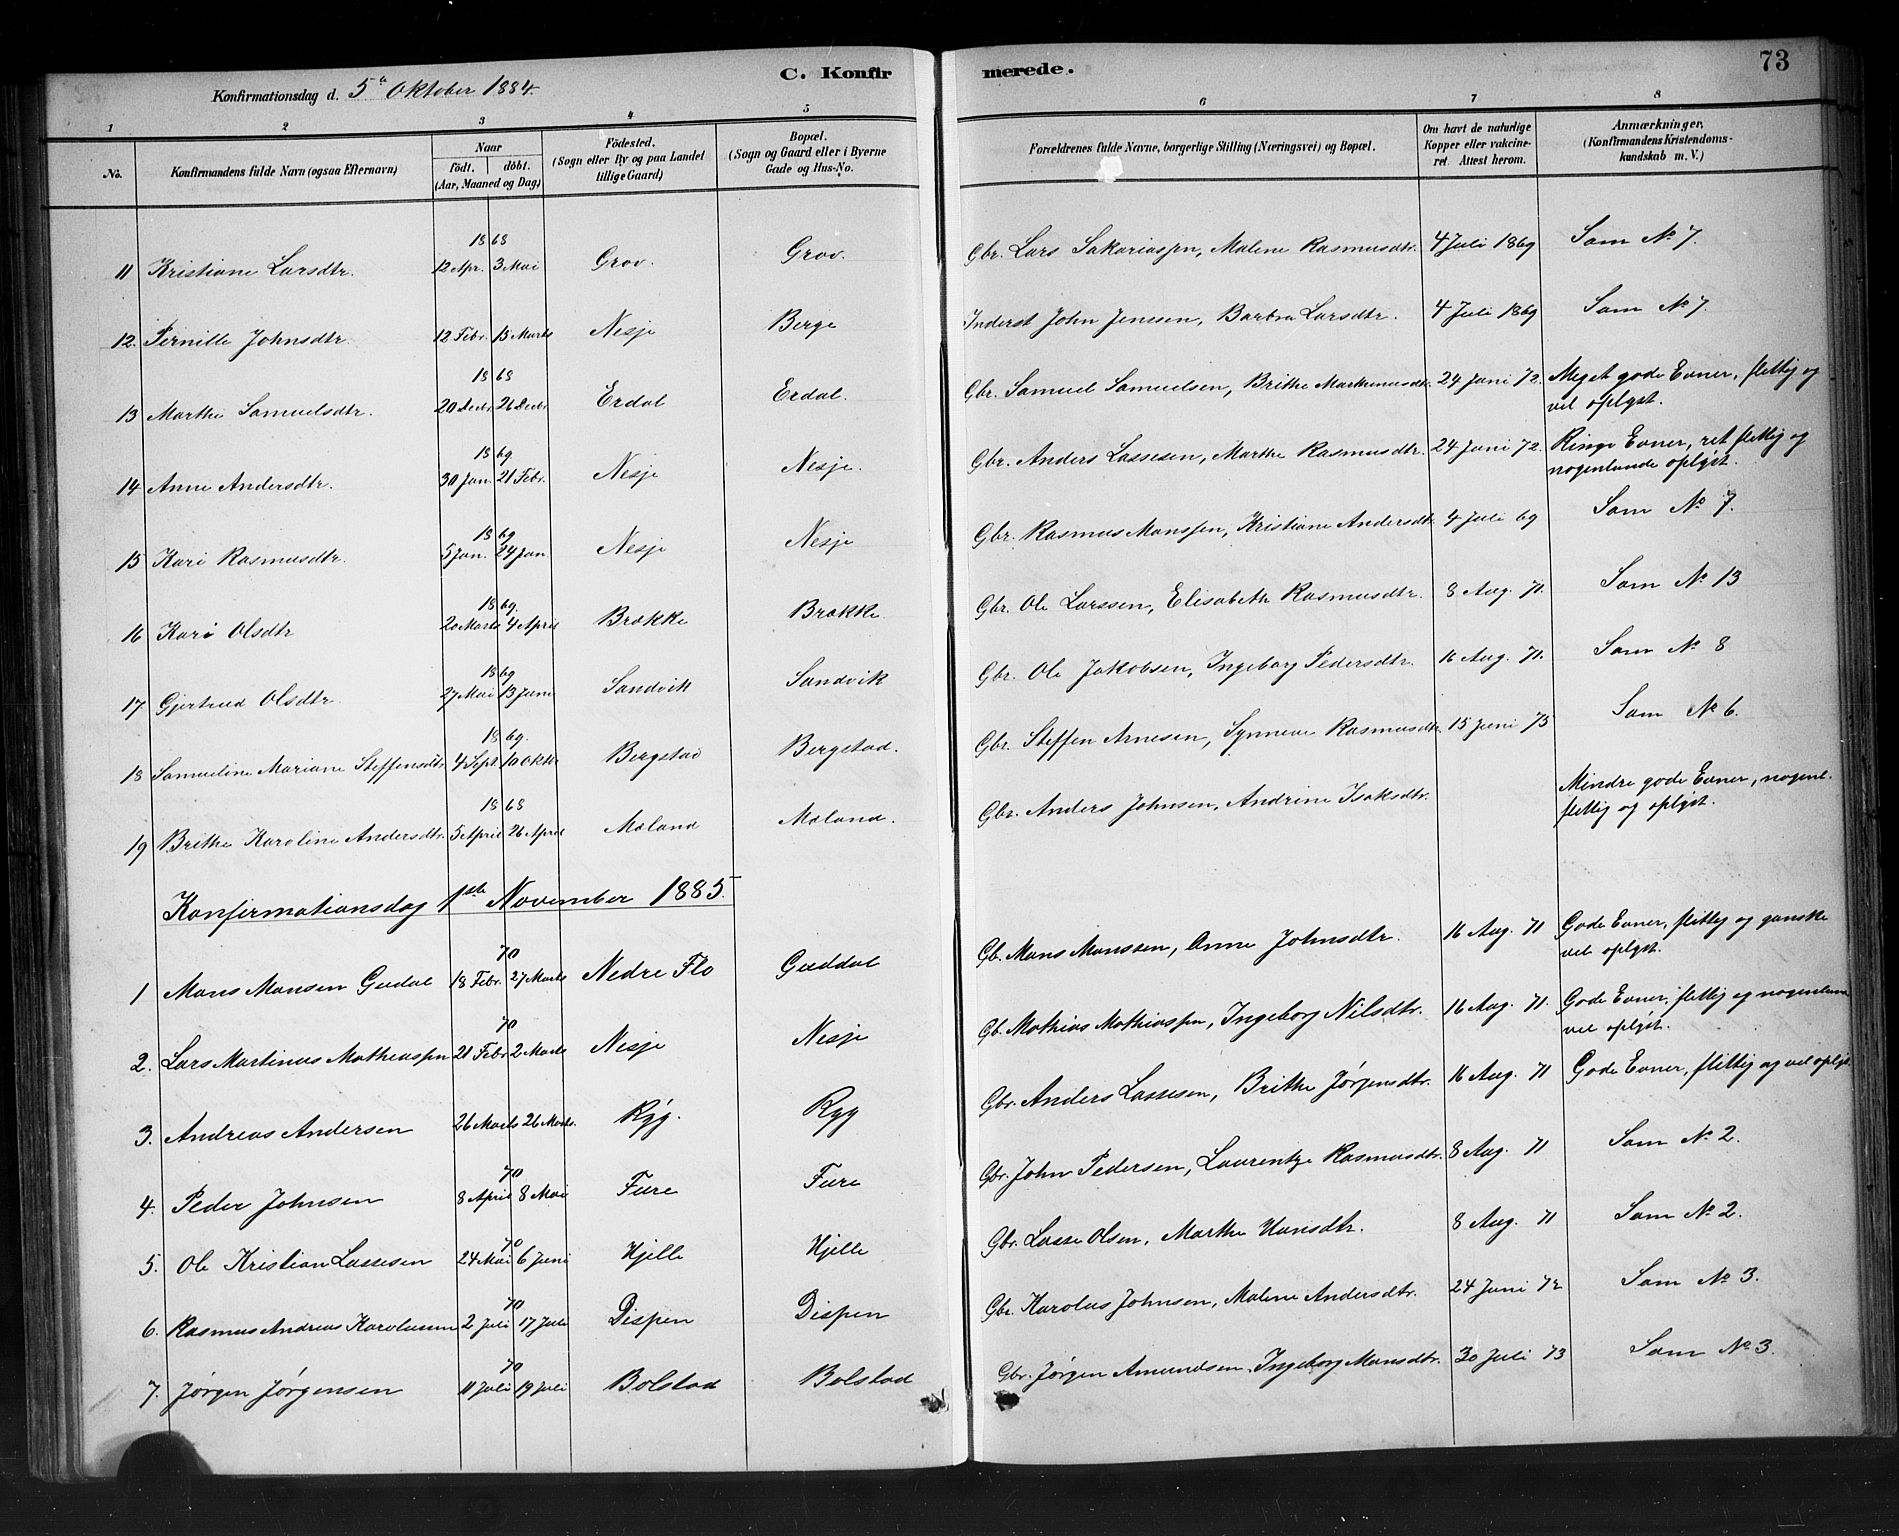 C. Konfirmerede. 73
Konfirmationsdag d. 5te Oktober 1884.
1 2 3 4 5 6 7 8
No. Konfirmandens fulde Navn (ogsaa Efternavn) Naar födt. döbt. (Aar, Maaned og Dag) Födested. (Sogn eller By og paa Landet tillige Gaard) Bopæl. (Sogn og Gaard eller i Byerne Gade og Hus-No. Forældrenes fulde Navne, borgerlige Stilling (Næringsvei) og Bopæl. Om havt de naturlige Kopper eller vakcineret. Attest herom. Anmærkninger, (Konfirmandens Kristendomskundskab m. V.)
11 Kristiane Larsdtr. 1868 12 Apr. 3 Mai Grov. Grov. Gbr. Lars Sakariassen, Malene Rasmusdtr. 4 Juli 1869 Som No 7.
12. Pernille Johnsdtr. 12 Febr. 15 Marts Nesje Berge Inderst John Jensen, Barbra Larsdtr. 4 Juli 1869 Som No 7.
13 Marthe Samuelsdtr. 1868 20 Decbr. 26 Decbr. Erdal Erdal. Gbr. Samuel Samuelsen, Brithe Markusdtr. 24 Juni 72. Meget gode Evner, flittig og vel oplyst.
14 Anne Andersdtr. 1869 30 Jan. 21 Febr. Nesje Nesje. Gbr. Anders Lassesen, Marthe Rasmusdtr. 24 Juni 72. Ringe Evner, ret flittig og nogenlunde oplyst.
15 Kari Rasmusdtr. 1869 5 Jan. 24 Jan Nesje Nesje Gbr. Rasmus Monssen, Kristiane Andersdtr. 4 Juli 69 Som No 7.
16 Kari Olsdtr 1869. 20 Marts 4 April Brække Brække Gbr. Ole Larssen, Elisabeth Rasmusdtr. 8 Aug. 71. Som No 13
17 Gjertrud Olsdtr. 1869 27 Mai 13 Juni Sandvik Sandvik Gbr. Ole Jakobsen, Ingeborg Pedersdtr. 16 Aug. 71. Som No 8
18 Samueline Mariane Steffensdtr 1869. 4 Sept. 10 Oktr Bergstad Bergstad. Gbr. Steffen Arnesen, Synneve Rasmusdtr. 15 Juni 75 Som No 6.
19 Brithe Karoline Andersdtr. 1868 5 April 26 April Moland Moland. Gbr. Anders Johnsen, Andrine Isaksdtr. Mindre gode Evner, nogenl. flittig og oplyst.
Konfirmationsdag 1ste November 1885.
1 Mons Monsen Gudal 70 18 Febr. 27 Marts Nedre Flo Guddal Gb. Mons Monssen, Anne Johnsdtr. 16 Aug. 71 Gode Evner, flittig og ganske vel oplyst.
2. Lars Martinus Mathiassen 70 21 Febr 2 Marts Nesje Nesje Gb. Mathias Mathiassen, Ingeborg Nilsdtr. 16 Aug. 71. Gode Evner, flittig og nogenlunde vel oplyst.
3. Andreas Andersen 26 Marts 26 Marts. Ryg. Ryg Gbr. Anders Lassesen, Brithe Jørgensdtr. 16 Aug. 71 Gode Evner, flittig og vel oplyst.
4. Peder Johnsen 70 8 April 8 Mai Fure Fure Gbr. John Pedersen, Laurentze Rasmusdtr. 8 Aug. 71 Som No 2.
5. Ole Kristian Lassesen 70 24 Mai 6 Juni Hjelle Hjelle Gbr. Lasse Olsen, Marthe Hansdtr. 8 Aug. 71 Som No 2.
6. Rasmus Andreas Karolussen 70 2 Juli 17 Juli Dispen Dispen Gbr. Karolus Johnsen, Malene Andersdtr. 24 Juni 72 Som No 3.
7. Jørgen Jørgensen 70 11 Juli 19 Juli Bolstad Bolstad Gbr. Jørgen Amundsen, Ingeborg Monsdtr. 30 Juli 73 Som No 3.